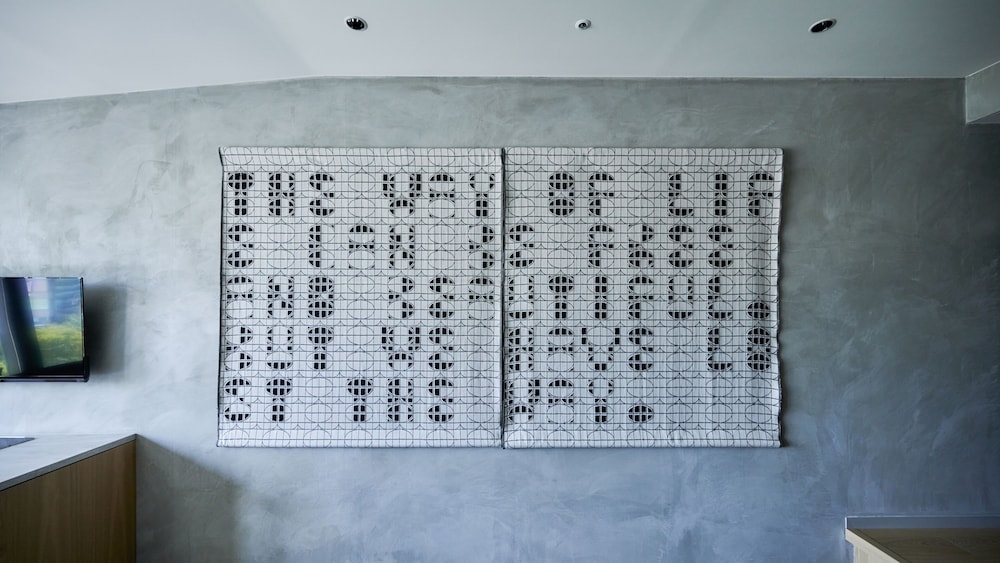 THE WAY OF LIF
E CAN BE FREE
AND BEAUTIFUL.
BUT WE HAVE LO
ST THE WAY.